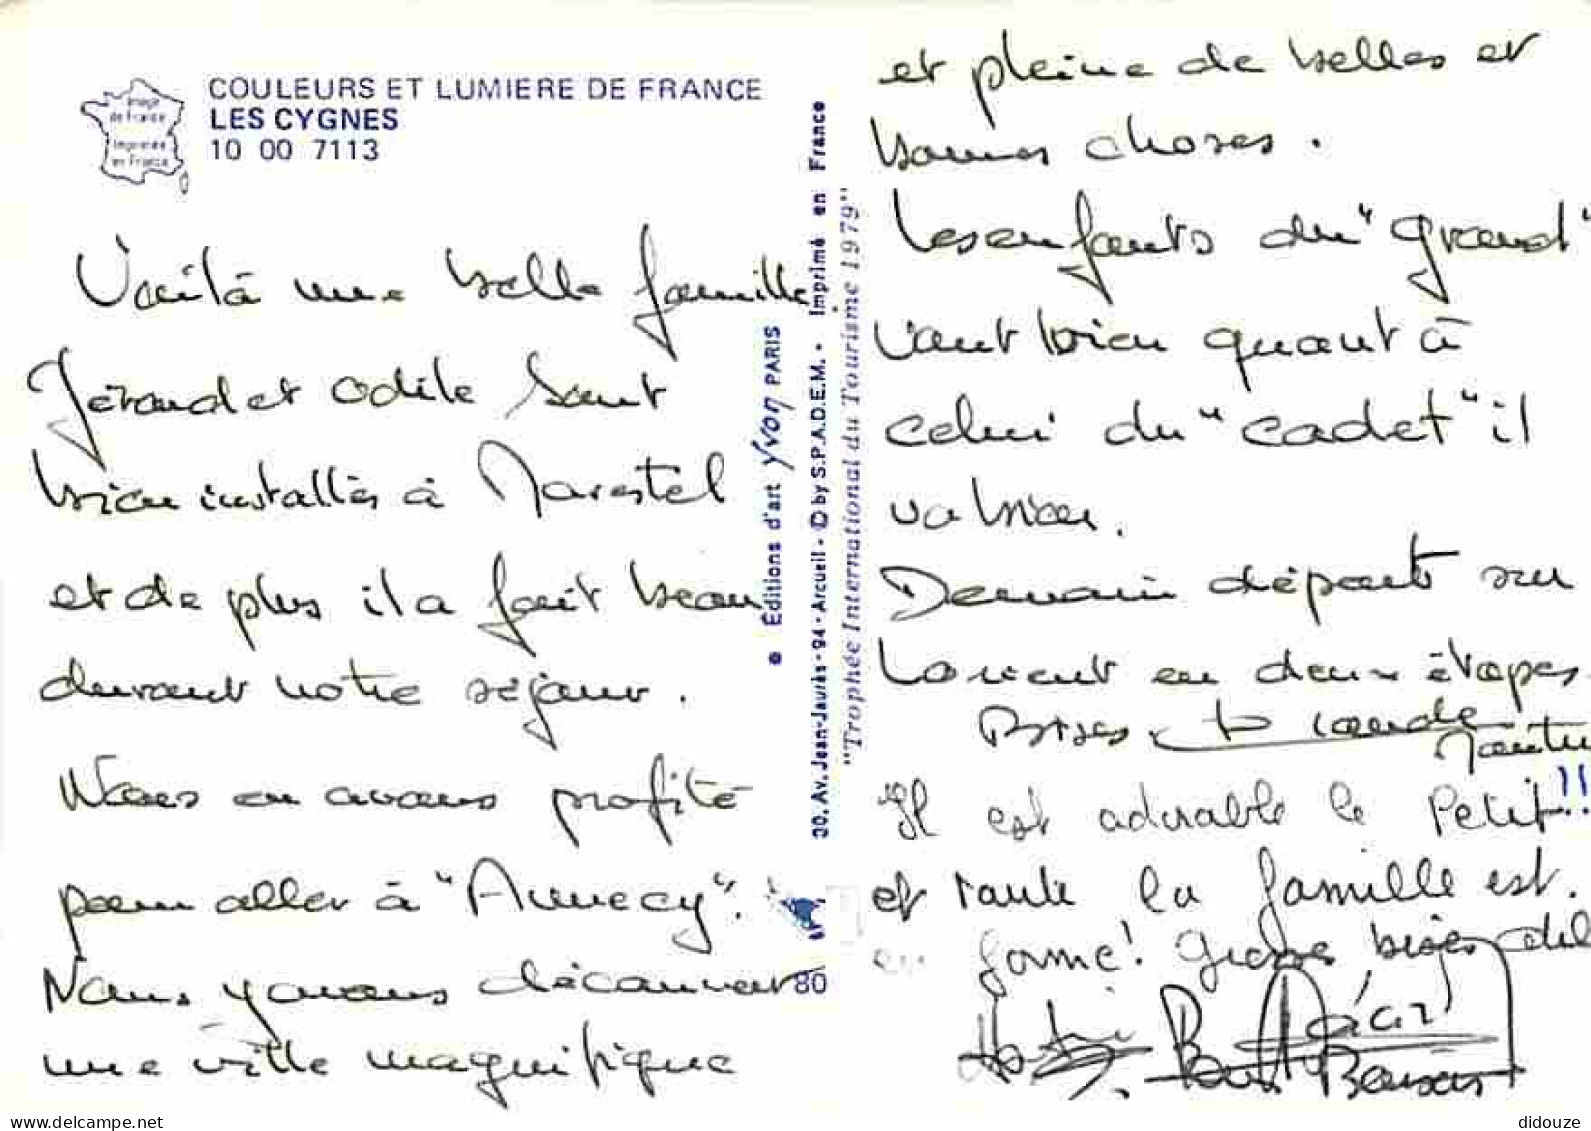 Image
de France
Imprimée
en France
COULEURS ET LUMIERE DE FRANCE
LES CYGNES
10 00 7113
Voilà une belle famille
Gérard et Odile sont
bien installés à Marestel
et de plus il a fait beau
durant notre séjour.
Nous en avons profité
pour aller à "Annecy".
Nous y avons découvert
une ville magnifique
● Éditions d'art yvon PARIS
30, Av. Jean-Jaurès - 94 - Arcueil - © by S.P.A.D.E.M. - Imprimé en France
"Trophée International du Tourisme 1979"
80
et pleine de belles et
bonnes choses.
Les enfants du "grand"
vont bien quant à
celui du "cadet" il
va bien.
Demain départ sur
Lorient en deux étapes.
Bises
Il est adorable le petit!!
et toute la famille est.
en forme! Grosses bises
didouze